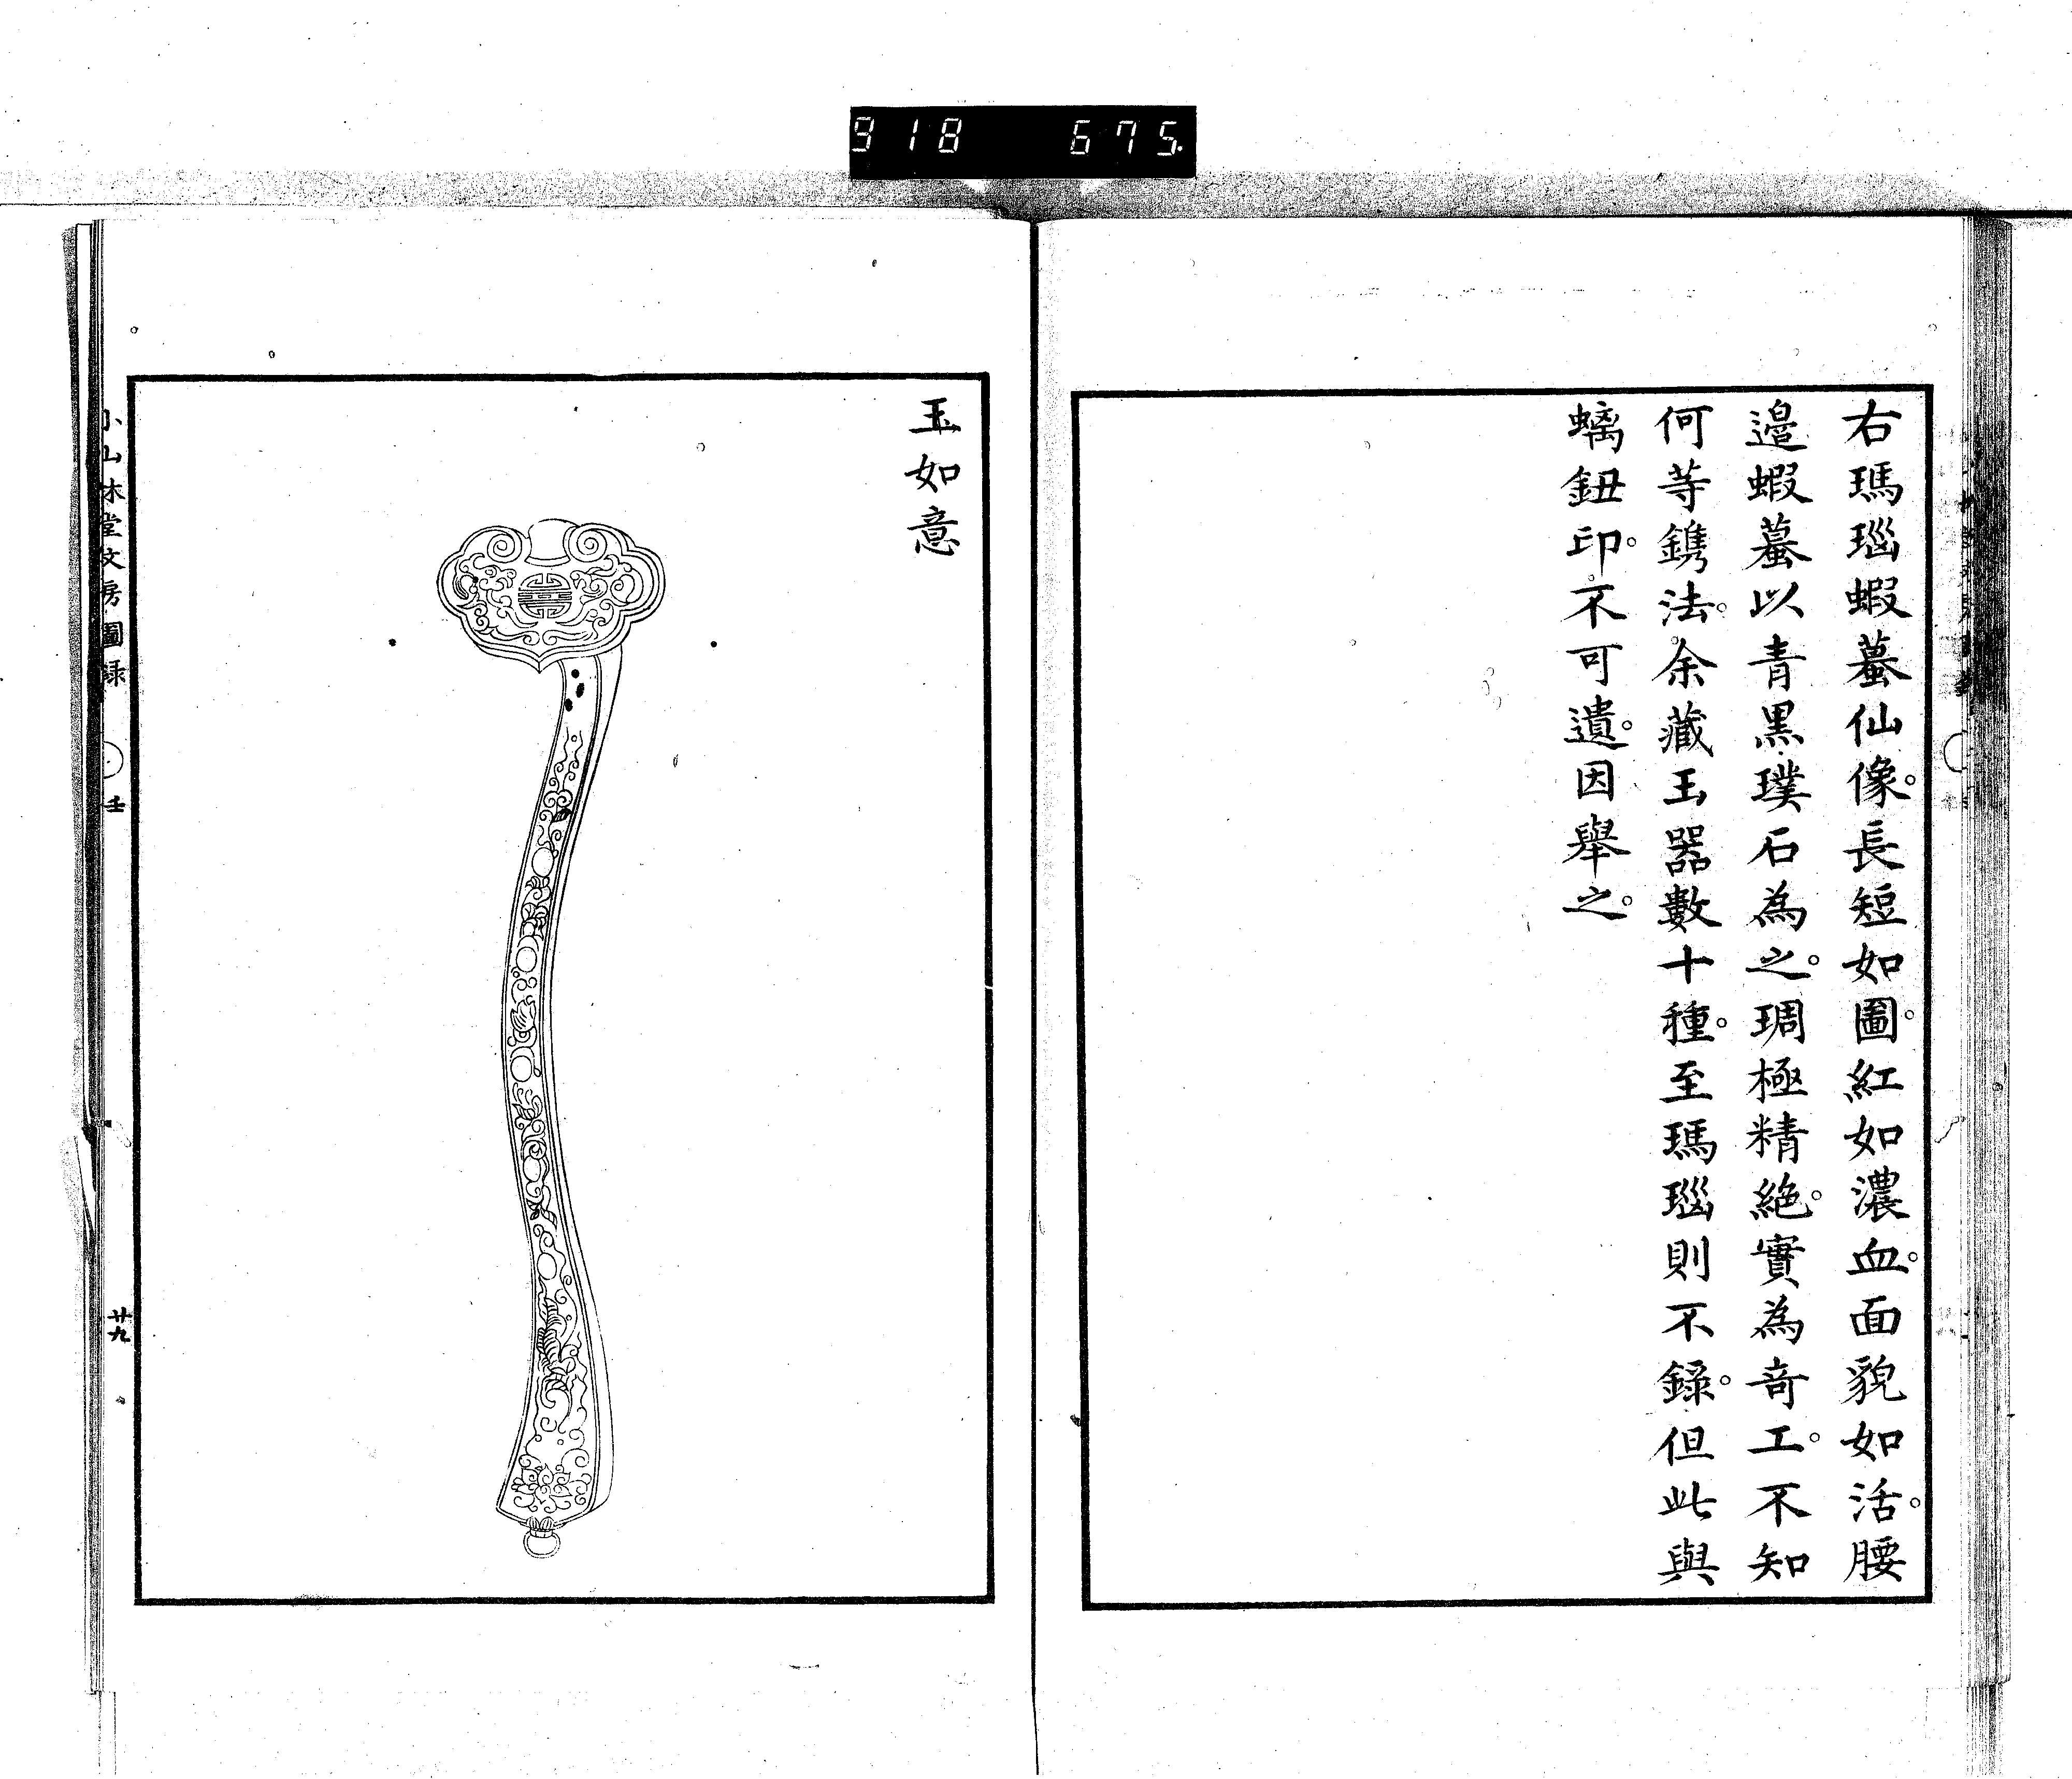 918 675.
右瑪瑙蝦蟇仙像。長短如圖。紅如濃血。面貌如活。腰
邉蝦蟇以青黒璞石為之。琱極精絶。實為竒工。不知
何等鐫法。余藏玉器數十種。至瑪瑙則不錄。但此與
螭鈕印。不可遺。因舉之。
玉如意
小山林堂文房圖錄 壬 廿九